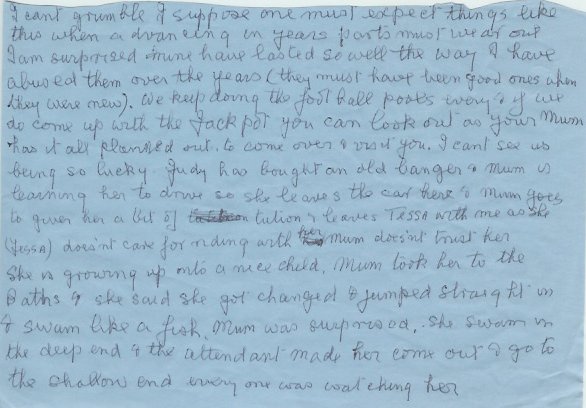 I cant grumble I suppose one must expect things like
this when advancing in years parts must wear out
I am surprised mine have lasted so well the way I have
abused them over the years (they must have been good ones when
they were new). We keep doing the foot ball pools every & if we
do come up with the Jack pot you can look out as your Mum
has it all planned out. to come over & visit you. I cant see us
being so lucky. Judy has bought an old banger & Mum is
learning her to drive so she leaves the car here & Mum goes
to giver her a bit of tution & leaves TESSA with me as she
(TESSA) does'nt care for riding with her Mum does'nt trust her
She is growing up into a nice child. Mum took her to the
Baths & she said she got changed & jumped straight in
& swam like a fish. Mum was surprised. She swam in
the deep end & the attendant made her come out & go to
the shallow end every one was watching her